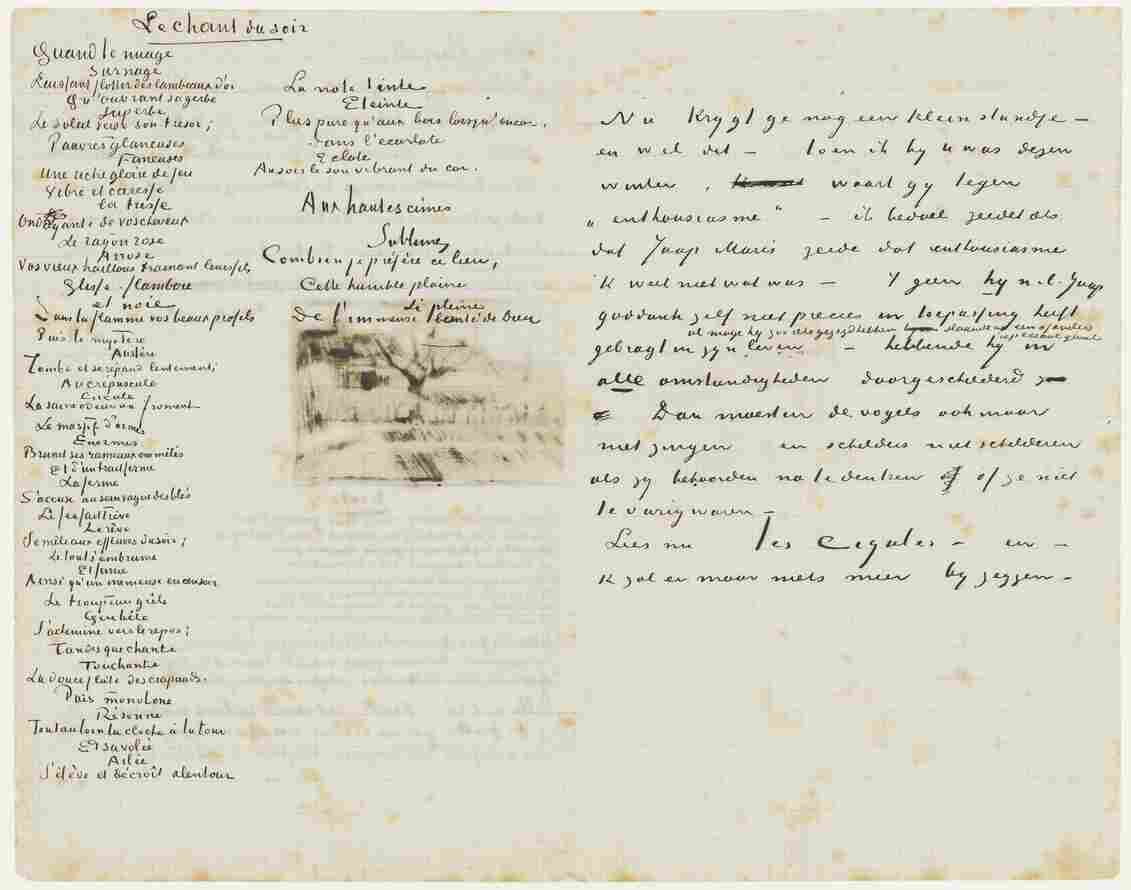 Le chant du soir
Quand le nuage
Surnage
Faisant flotter des lambeaux d'or
Qu'ouvrant sa gerbe
Superbe
Le soleil son tresor;
Pauvres glaneuses
Faneuses
Une riche gloire de feu
Vibre et caresse
La tresse
Ondoyante de vos cheveux
Le rayon rose
Arrose
Vos vieux haillons trainant leurs fils
Glisse flamboie
et noie
Dans la flamme vos beaux profils
Puis le mystère
Austère
Tombe et se repand lentement;
Au crepuscule
Circule
La saine odeur du froment
Le massif d'ormes
Enormes
Brunit ses rameaux
Et d'un trait ferme
La ferme
S'accuse au sein vague des blés
Le rêve
Se mêle aux effluves du soir;
Le tout s'embrume
Et fume
Ainsi qu'un immense encensoir
Le troupeau grêle
Qui bêle
S'achemine vers le repos;
Tandis que chante
Touchante
La douce flute des crapauds.
Puis monotone
Résonne
Tout au loin la cloche à la tour
Et sa volée
Ailée
S'élève et décroît alentour
La note tinte
Eteinte
Plus pure qu'aux bois lorsqu'encor,
Dans l'ecarlate
Eclate
Au soir le son vibrant du cor.
Aux hautes cimes
Sublimes
Combien je préfère ce lieu,
Cette humble plaine
Si pleine
De l'immense bonté de Dieu
Nu krygt ge nog een klein standje —
en wel dit — toen ik by u was dezen
winter, waart gy tegen
„enthousiasme" — ik bedoel zeidet als
dat Jaap Maris zeide dat enthousiasme
ik weet niet wat was — 't geen hy n.l. Jaap
goddank zelf niet precies in toepassing heeft
al moge hy zoo iets gezegd hebben
gebragt in zyn leven — hebbende hy in
alle omstandigheden doorgeschilderd
Dan moesten de vogels ook maar
niet zingen en schilders niet schilderen
als zy behoorden na te denken of ze niet
te vurig waren —
Lees nu les Cigales — en —
ik zal er maar niets meer by zeggen —